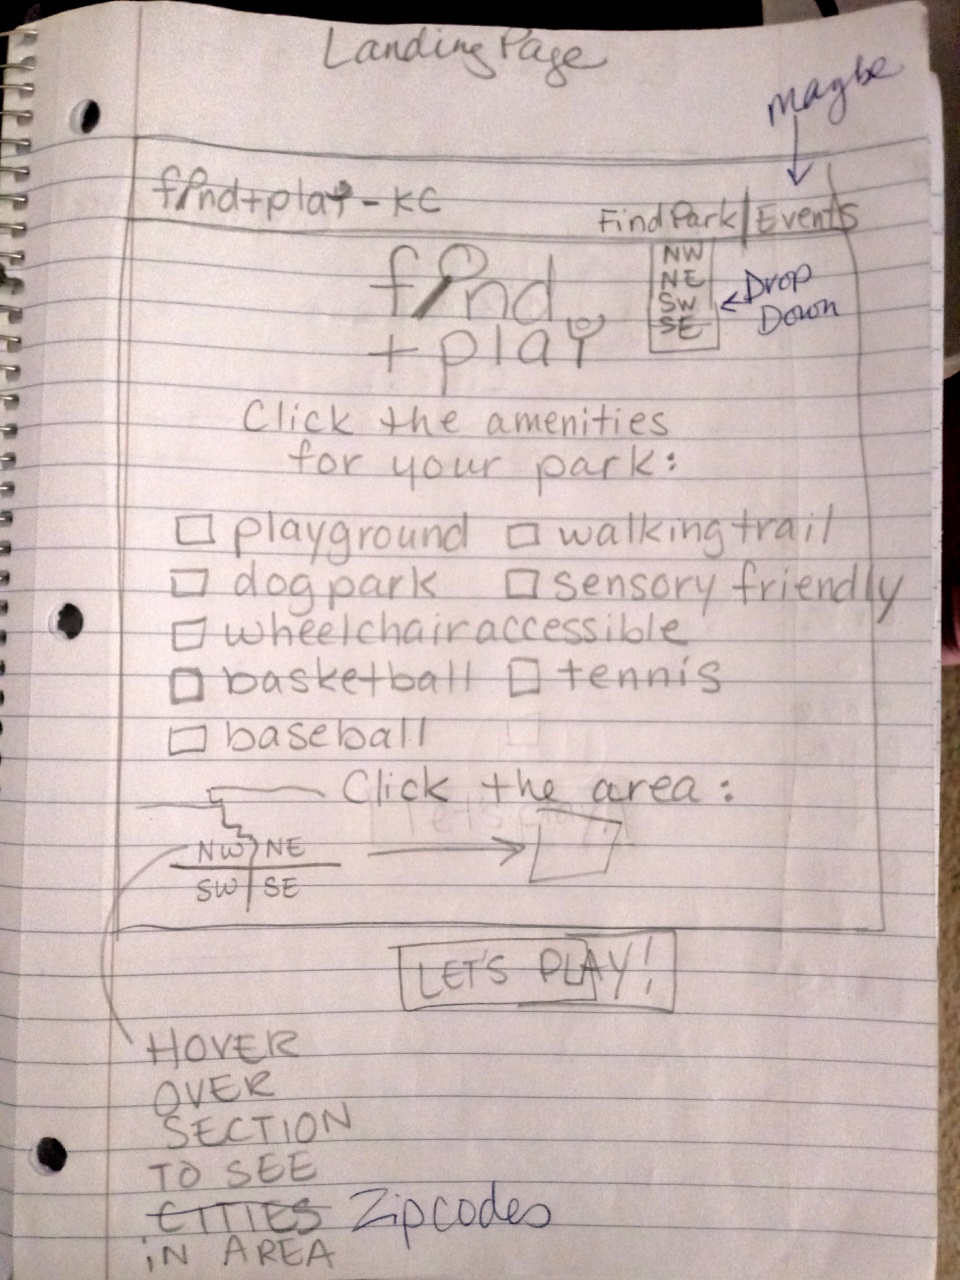 Landing Page
maybe
find+play-KC
Find Park | Events
NW
NE
SW
SE
Drop
Down
find
+play
Click the amenities
for your park:
playground walking trail
dog park sensory friendly
wheelchair accessible
basketball tennis
baseball
Click the area:
NW NE
SW SE
LET'S PLAY!
HOVER
OVER
SECTION
TO SEE
CITIES Zipcodes
IN AREA